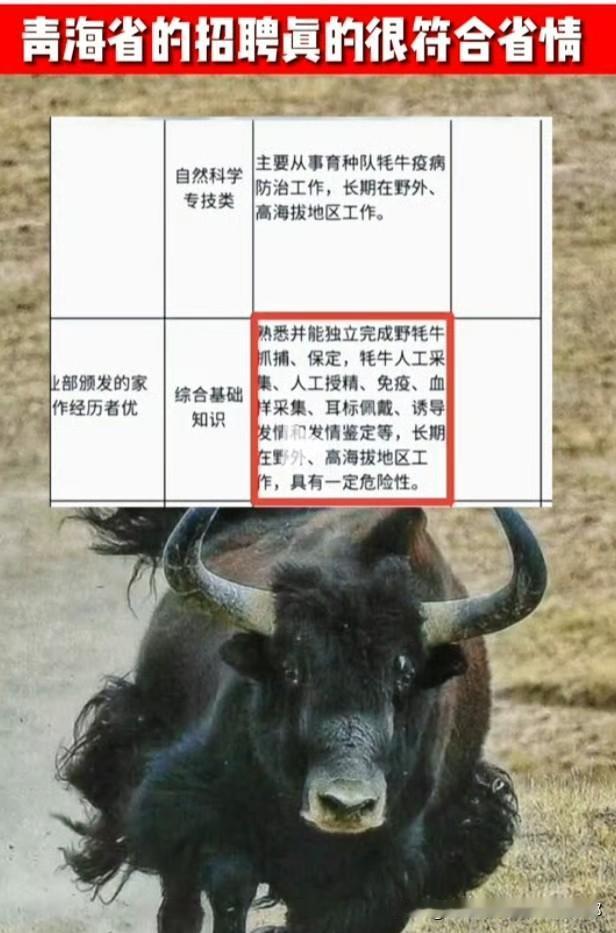 青海省的招聘真的很符合省情
自然科学
专技类
主要从事育种队牦牛疫病
防治工作，长期在野外、
高海拔地区工作。
业部颁发的家
作经历者优
综合基础
知识
熟悉并能独立完成野牦牛
抓捕、保定，牦牛人工采
集、人工授精、免疫、血
样采集、耳标佩戴、诱导
发情和发情鉴定等，长期
在野外、高海拔地区工
作，具有一定危险性。